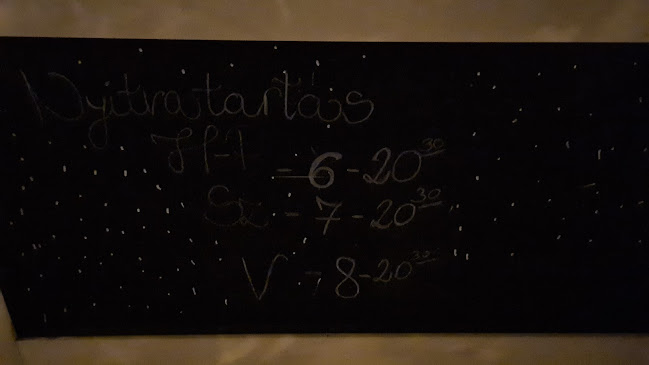 Nyitvatartás
H-P - 6 - 20³⁰
Sz - 7 - 20³⁰
V - 8 - 20³⁰